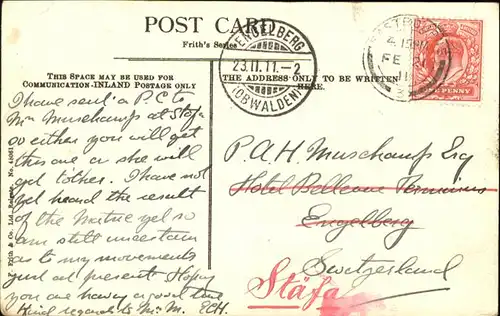 POST CARD
Frith's Series
THIS SPACE MAY BE USED FOR
COMMUNICATION-INLAND POSTAGE ONLY
THE ADDRESS ONLY TO BE WRITTEN
HERE.
ENGELBERG
23.II.11.-2
(OBWALDEN)
4 15 PM
FE
11
ONE PENNY
I have sent a P.C. to
Mrs Muschamp at
so either you will get
this one or she will
get tother. I have not
yet heard the result
of the yet so
am still uncertain
as to my movements
just at present Hoping
you are having a good time
Kind regards to Mrs M. ECH.
F. Frith & Co. Ltd., Reigate. No.
P A H Muschamp Esq
Hotel Bellevue Terminus
Engelberg
Switzerland
Stäfa